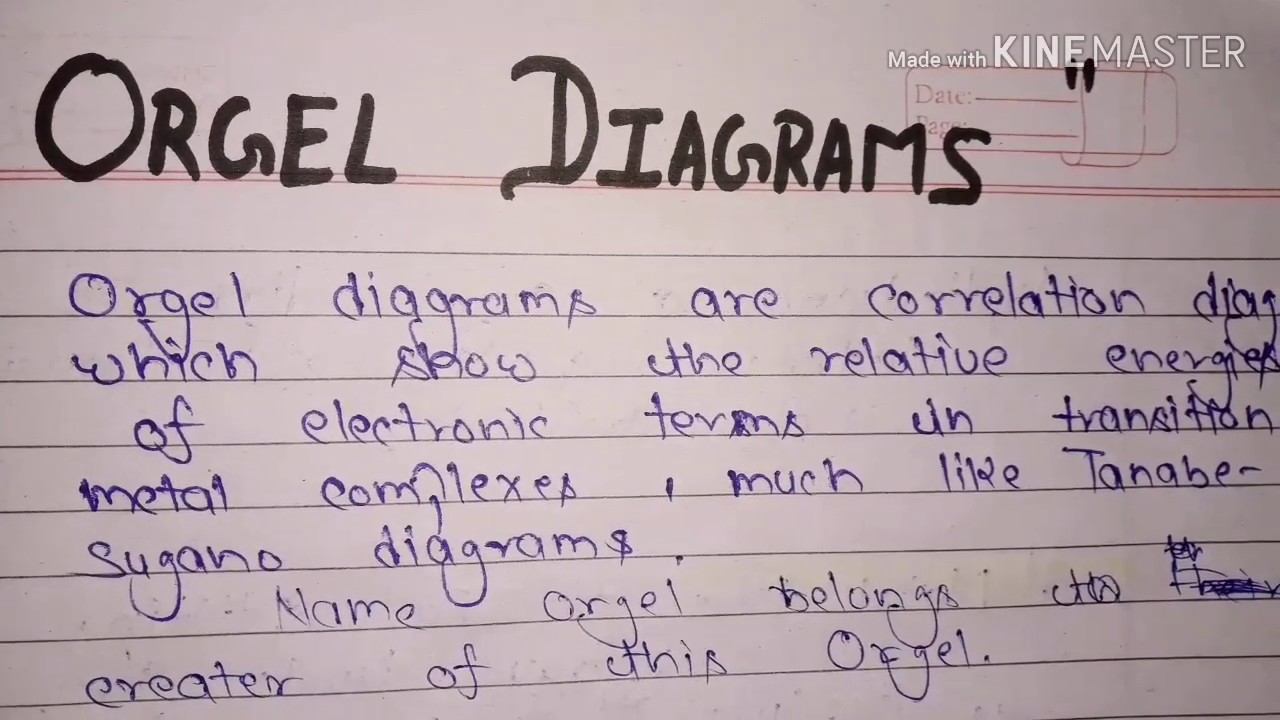 Made with KINEMASTER
Date:
Page:
ORGEL DIAGRAMS"
Orgel diagrams are correlation diag
which show the relative energies
of electronic terms in transition
metal complexes, much like Tanabe-
Sugano diagrams.
Name orgel belongs to
creater of this Orgel.